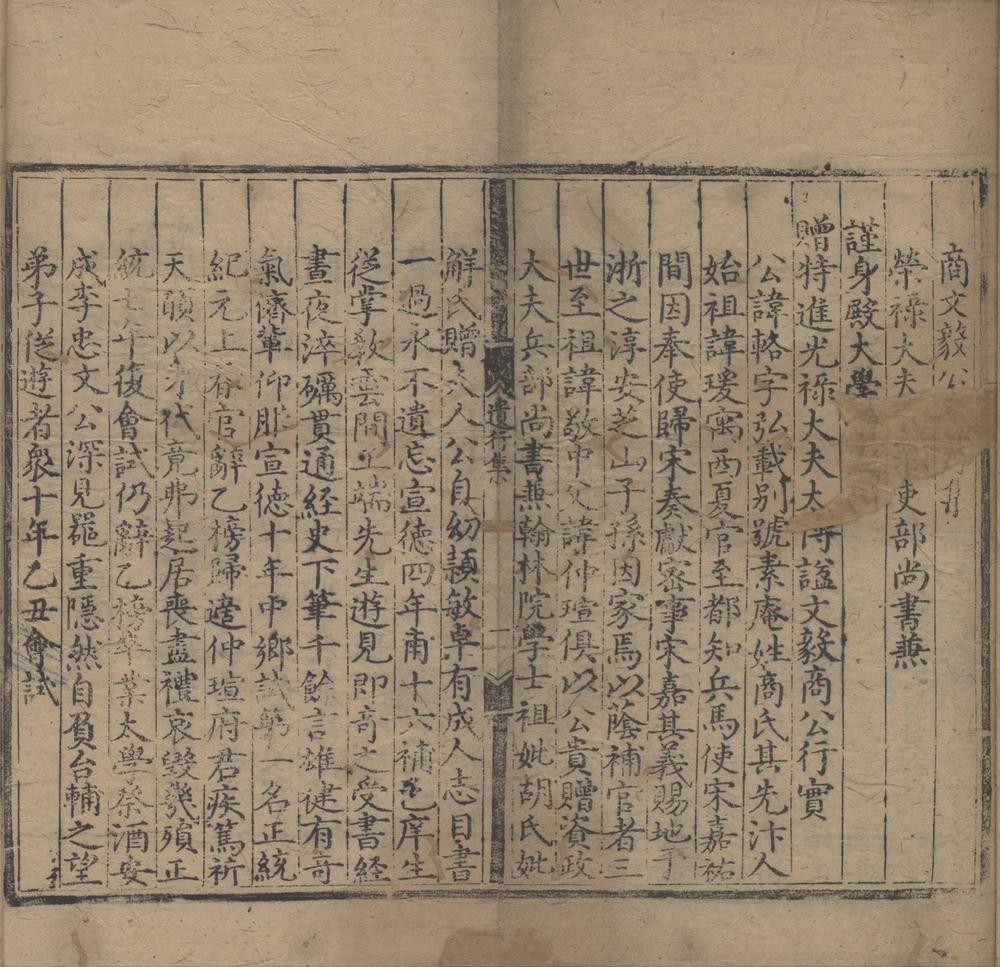 商文毅公
榮祿大夫 吏部尚書兼
謹身殿大學
贈特進光祿大夫太傅謚文毅商公行實
公諱輅字弘載別號素庵姓商氏其先汴人
始祖諱瑗寓西夏官至都知兵馬使宋嘉祐
間因奉使歸宋奏獻密事宋嘉其義賜地于
浙之淳安芝山子孫因家焉以蔭補官者三
世至祖諱敬中父諱仲瑄俱以公貴贈資政
大夫兵部尚書兼翰林院學士祖妣胡氏妣
遺行集
一
解氏贈夫人公自幼穎敏卓有成人志目書
一過永不遺忘宣德四年甫十六補邑庠生
從掌教雲間王端先生遊見即奇之受書經
晝夜淬礪貫通經史下筆千餘言雄健有奇
氣儕輩仰服宣德十年中鄉試第一名正統
紀元上春官辭乙榜歸適仲瑄府君疾篤祈
天願以身代竟弗起居喪盡禮哀毀幾殞正
統七年復會試仍辭乙榜卒業太學祭酒安
成李忠文公深見器重隱然自負台輔之望
弟子從遊者衆十年乙丑會試